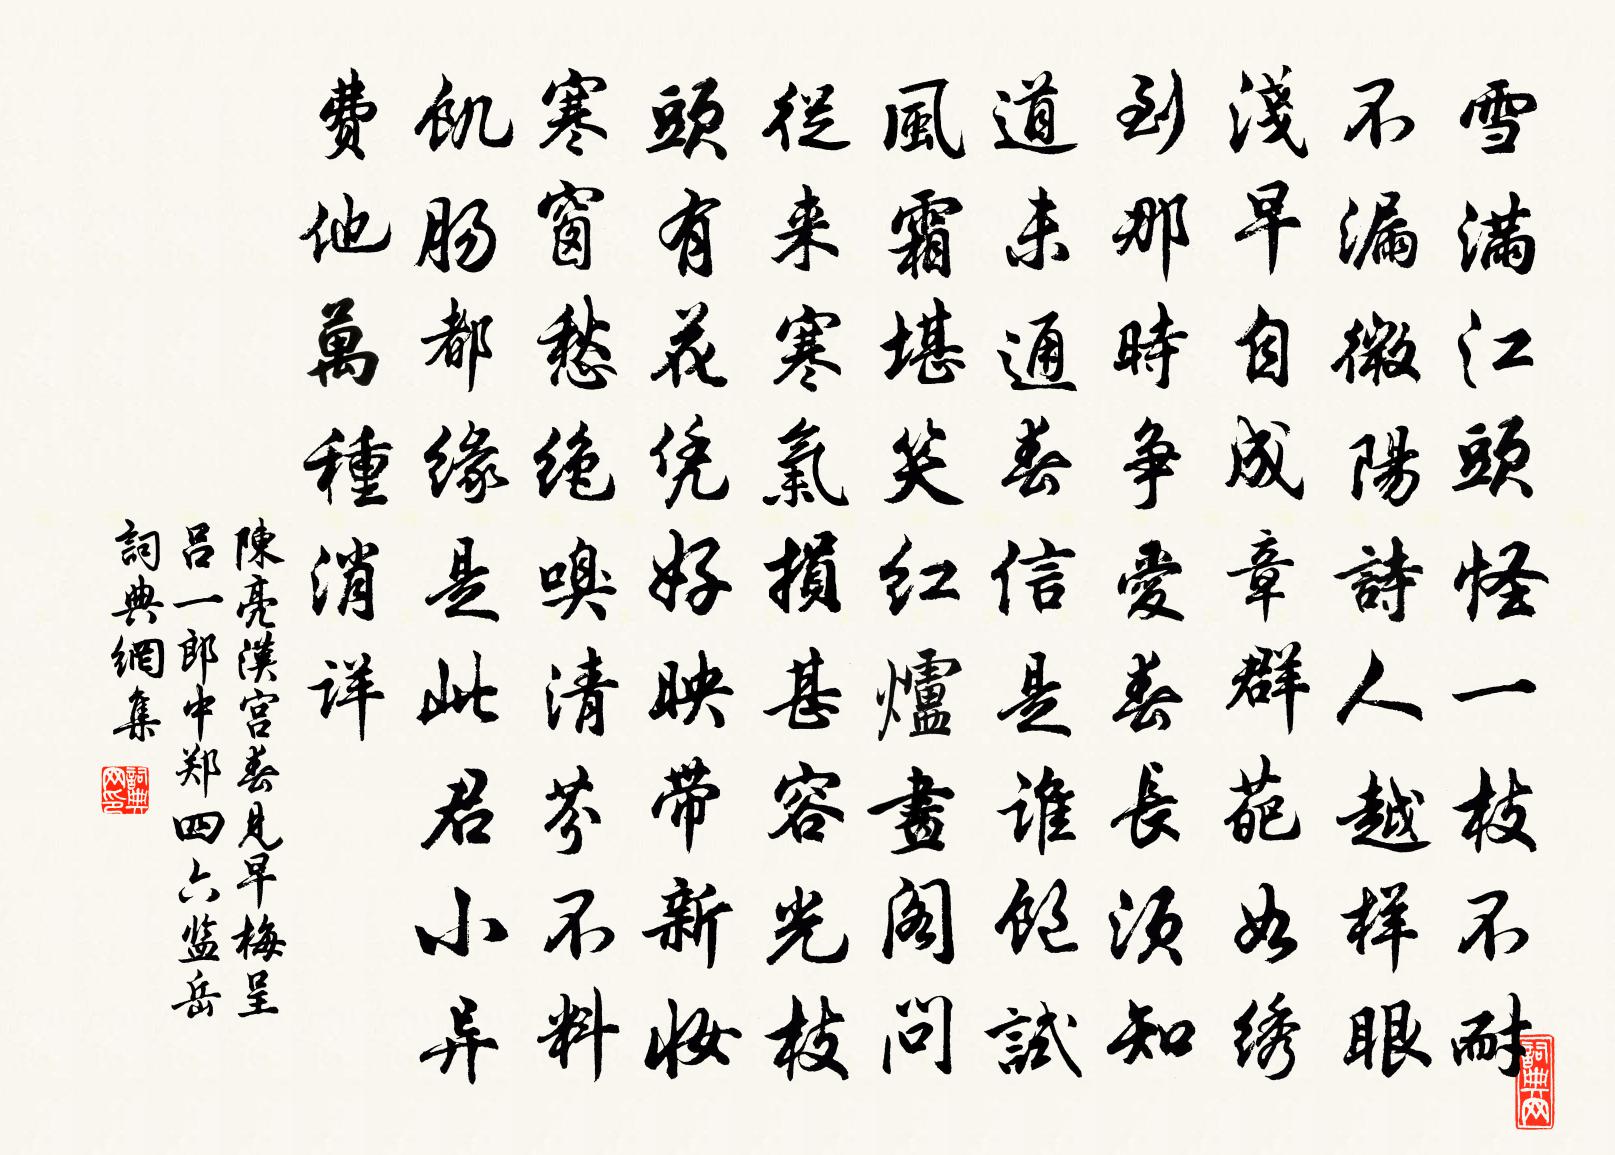 雪滿江頭怪一枝不耐
不漏微陽詩人越樣眼
淺早自成章群葩如绣
到那時争愛春長须知
道未通春信是谁饱試
風霜堪笑红爐畫阁问
從来寒氣損甚容光枝
頭有花凭好映带新妆
寒窗愁绝嗅清芬不料
飢肠都缘是此君小异
費他萬種消详
陳亮漢宫春見早梅呈
吕一郎中郑四六监岳
詞典網集
詞典网印
詞典网